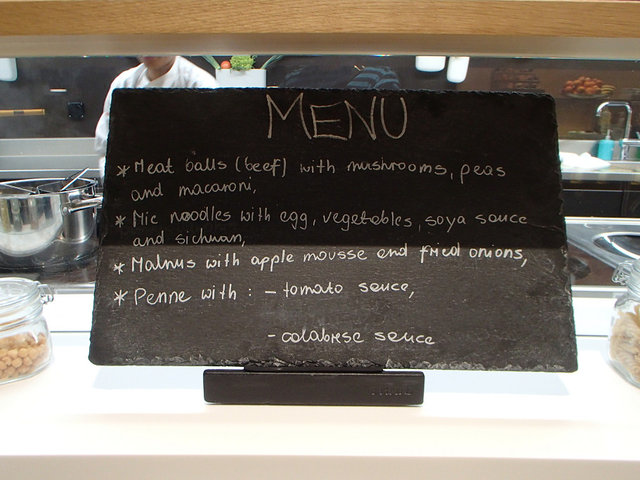 MENU
* Meat balls (beef) with mushrooms, peas
and macaroni,
* Mie noodles with egg, vegetables, soya sauce
and sichuan,
* Malnus with apple mousse and fried onions,
* Penne with : - tomato sauce,
- calabrese sauce